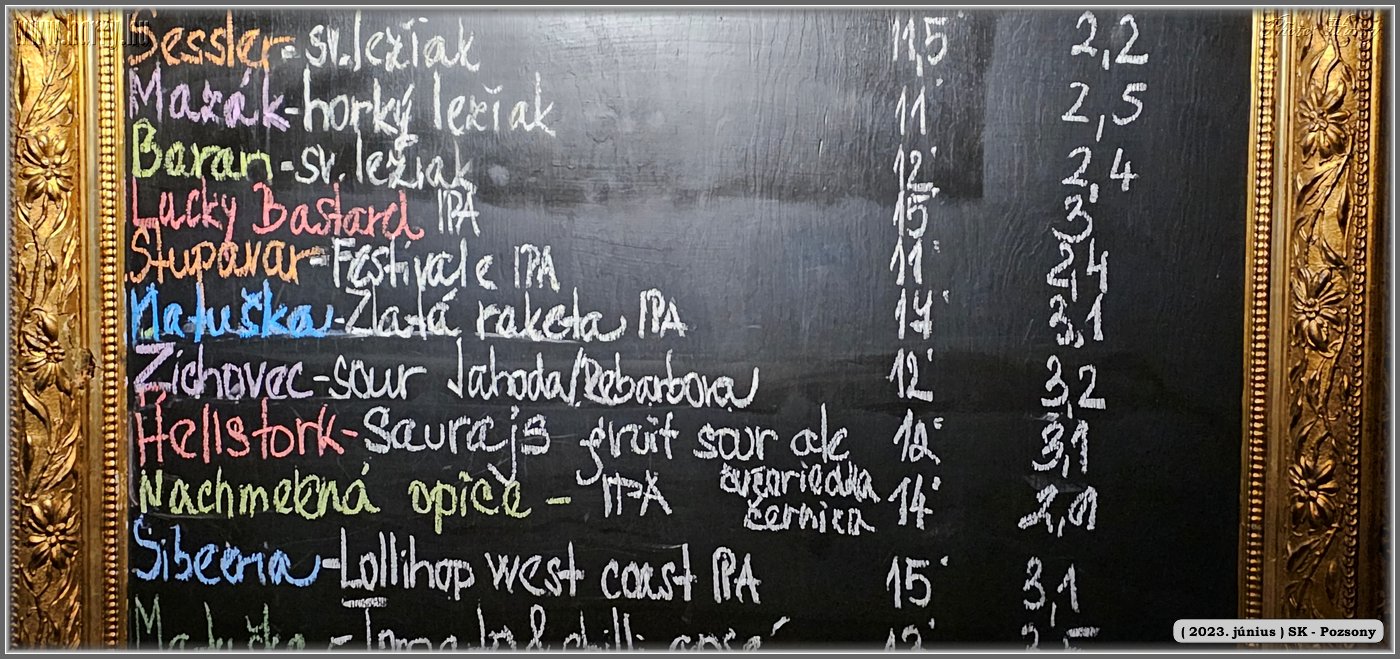 www.hrrey.hu
Photo: Hrrey
Sessler - sv. ležiak 11,5° 2,2
Mazák - horký ležiak 11° 2,5
Baran - sv. ležiak 12° 2,4
Lucky Bastard IPA 15° 3
Stupavar - Festivale IPA 11° 2,4
Matuška - Zlatá raketa IPA 14° 3,1
Zichovec - sour Jahoda/Rebarbora 12° 3,2
Hellstork - Saurajs gruit sour ale 12° 3,1
čučoriedka
Nachmelená opice - IPA 14°
černica
Sibeeria - Lollihop west coast IPA 15° 3,1
Matuška - Tomato & chilli gose 12°
( 2023. június ) SK - Pozsony